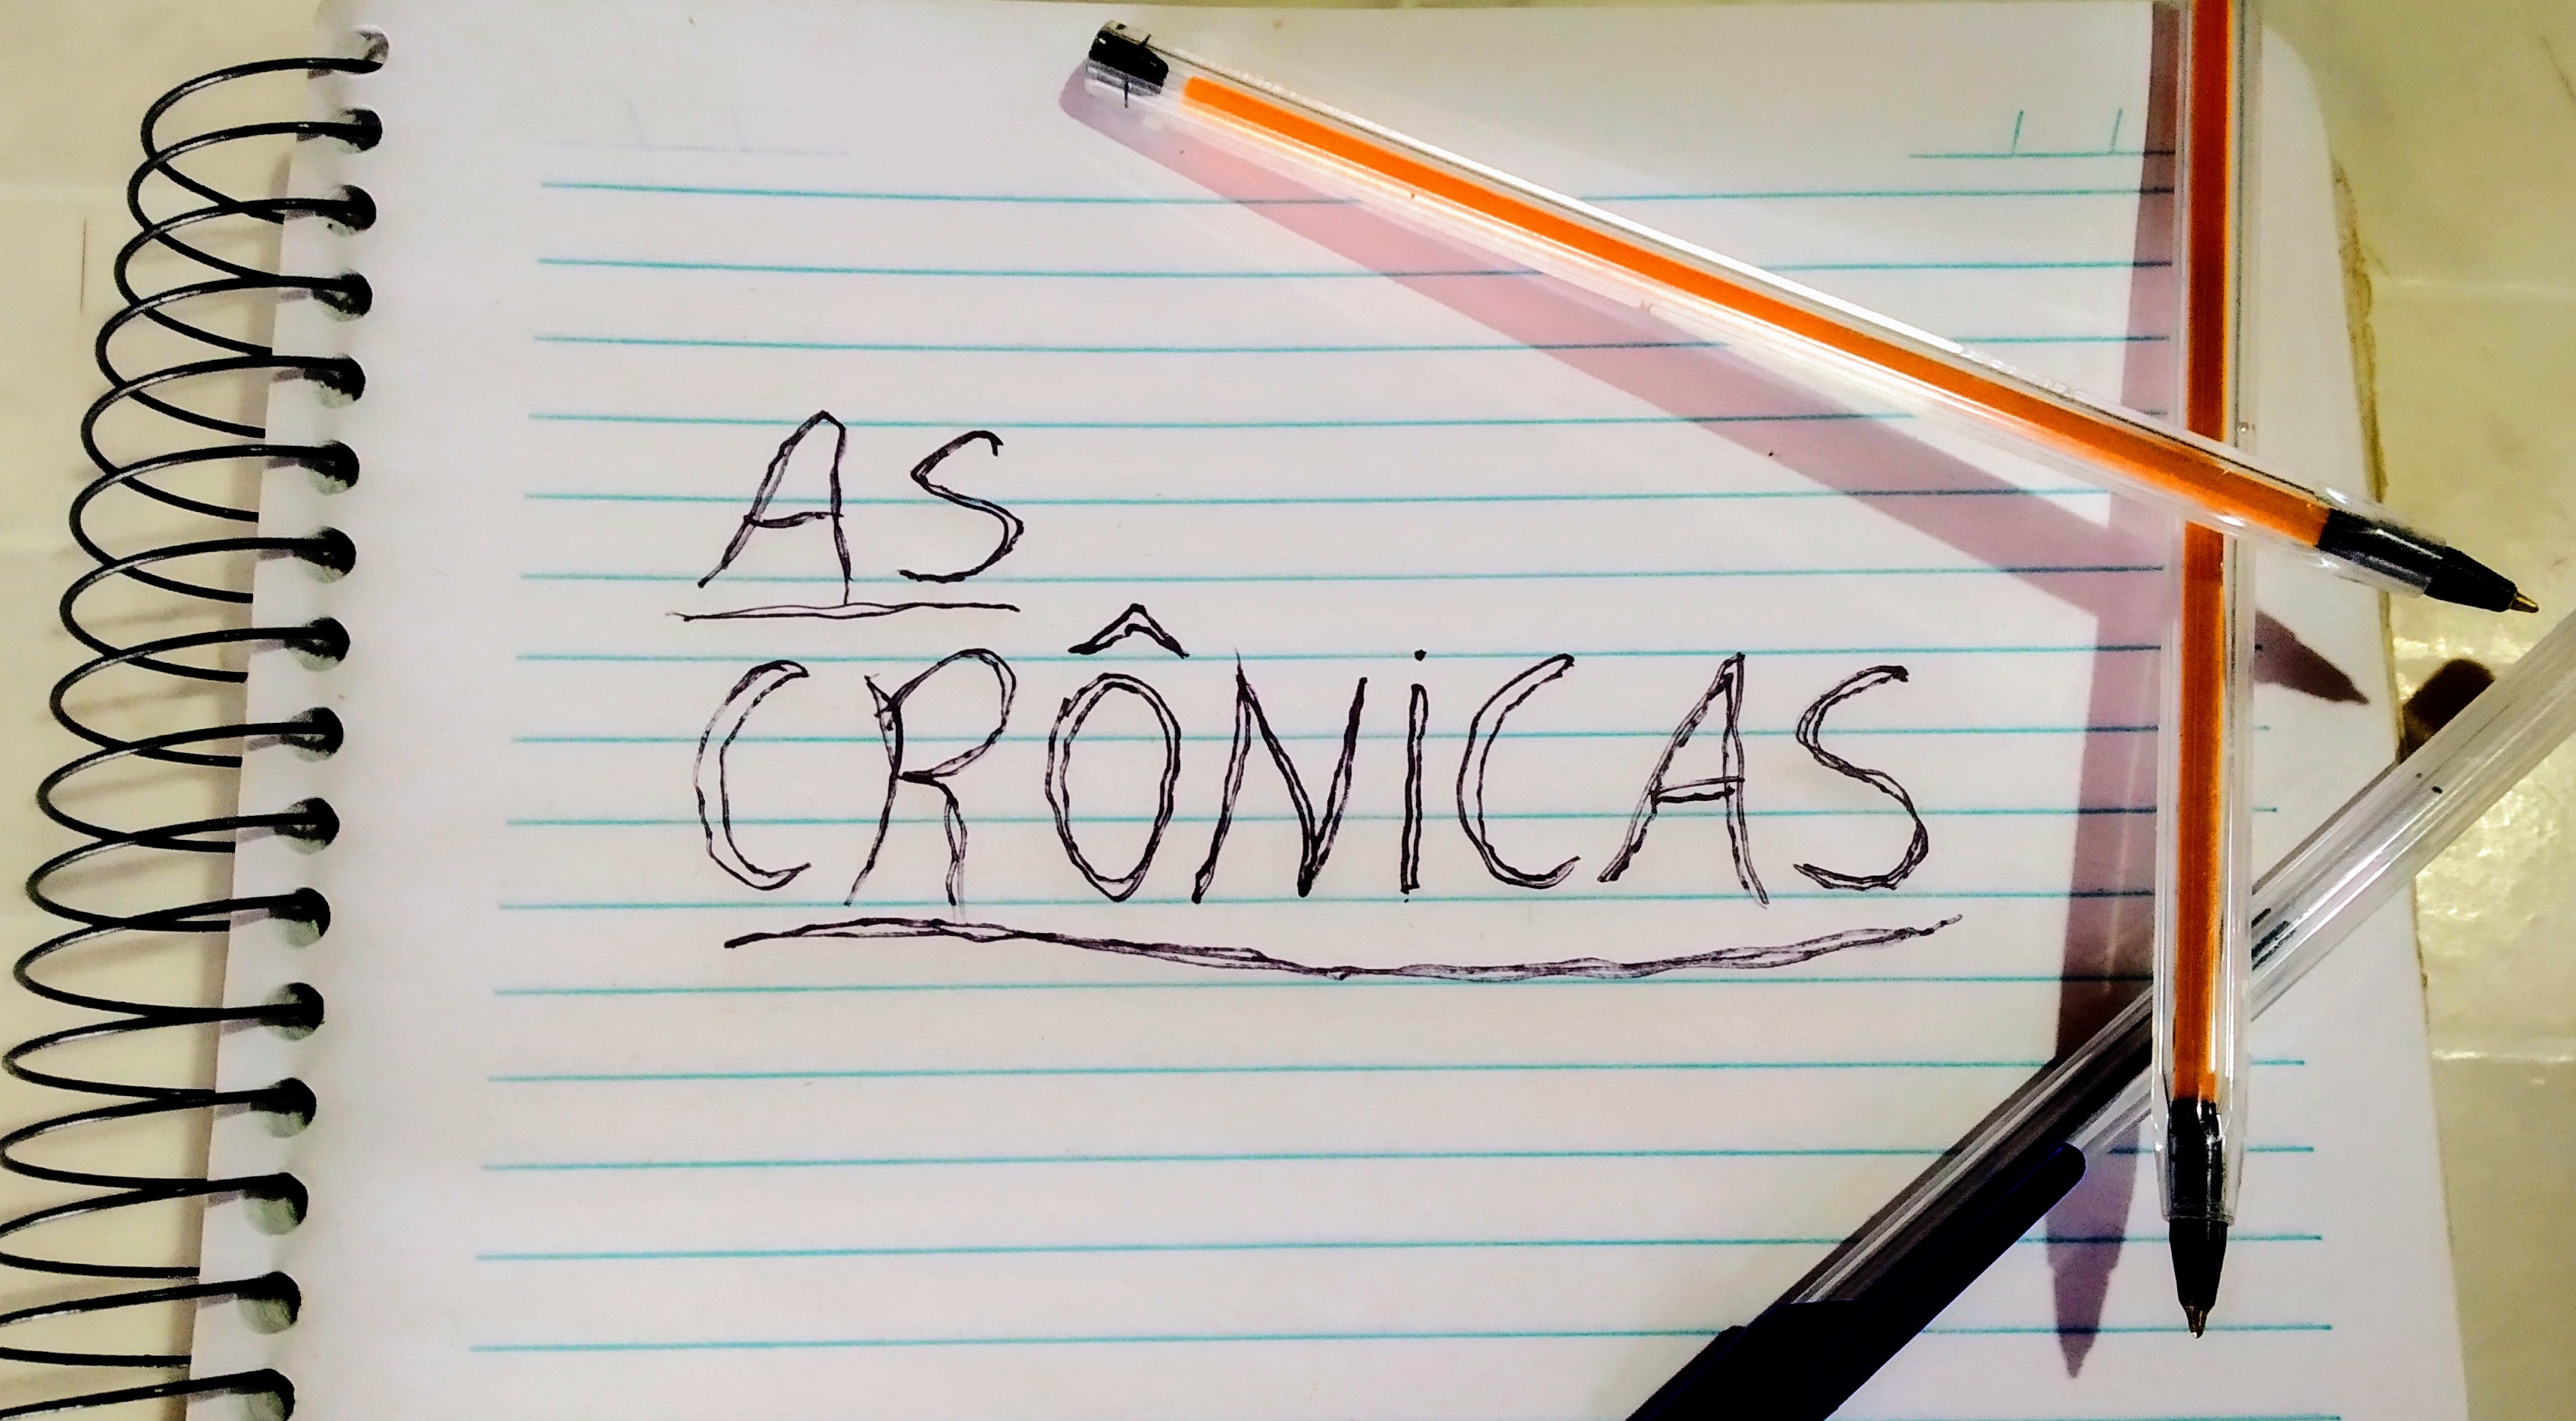 AS
CRÔNICAS